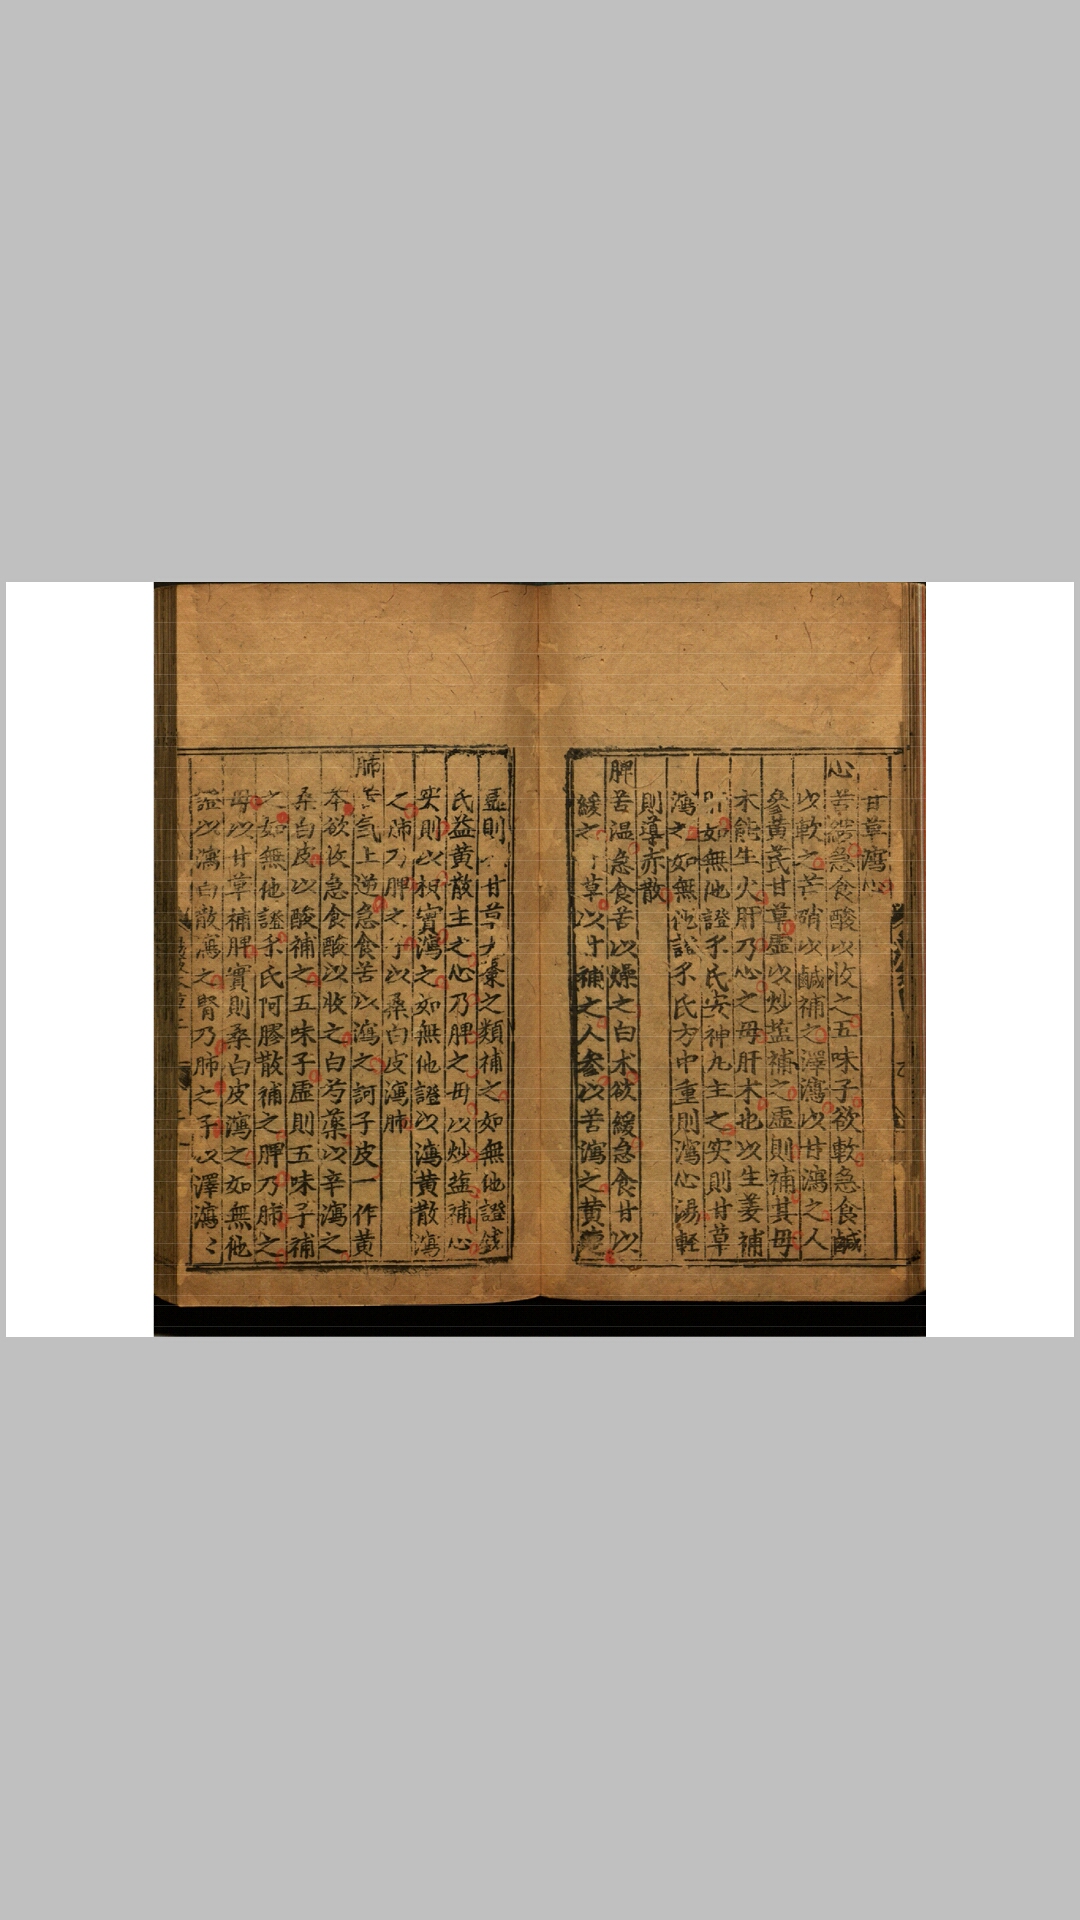 甘草瀉心
心苦緩急食酸以收之五味子欲軟急食鹹
以軟之芒硝以鹹補之澤瀉以甘瀉之人
參黃芪甘草虛以炒盐補之虛則補其母
木能生火肝乃心之母肝木也以生姜補
如無他證錢氏安神丸主之实則甘草
瀉之如無他證錢氏方中重則瀉心湯軽
則導赤散
脾苦温急食苦以燥之白术欲緩急食甘以
緩之草以甘補之人參以苦瀉之黄
虛則甘草大棗之類補之如無他證錢
氏益黄散主之心乃脾之母以炒盐補心
实則以枳實瀉之如無他證以瀉黄散瀉
之肺乃脾之子以桑白皮瀉肺
肺苦气上逆急食苦以瀉之訶子皮一作黄
芩欲收急食酸以收之白芍藥以辛瀉之
桑白皮以酸補之五味子虛則五味子補
之如無他證錢氏阿膠散補之脾乃肺之
母以甘草補脾實則桑白皮瀉之如無他
證以瀉白散瀉之腎乃肺之子以澤瀉〻